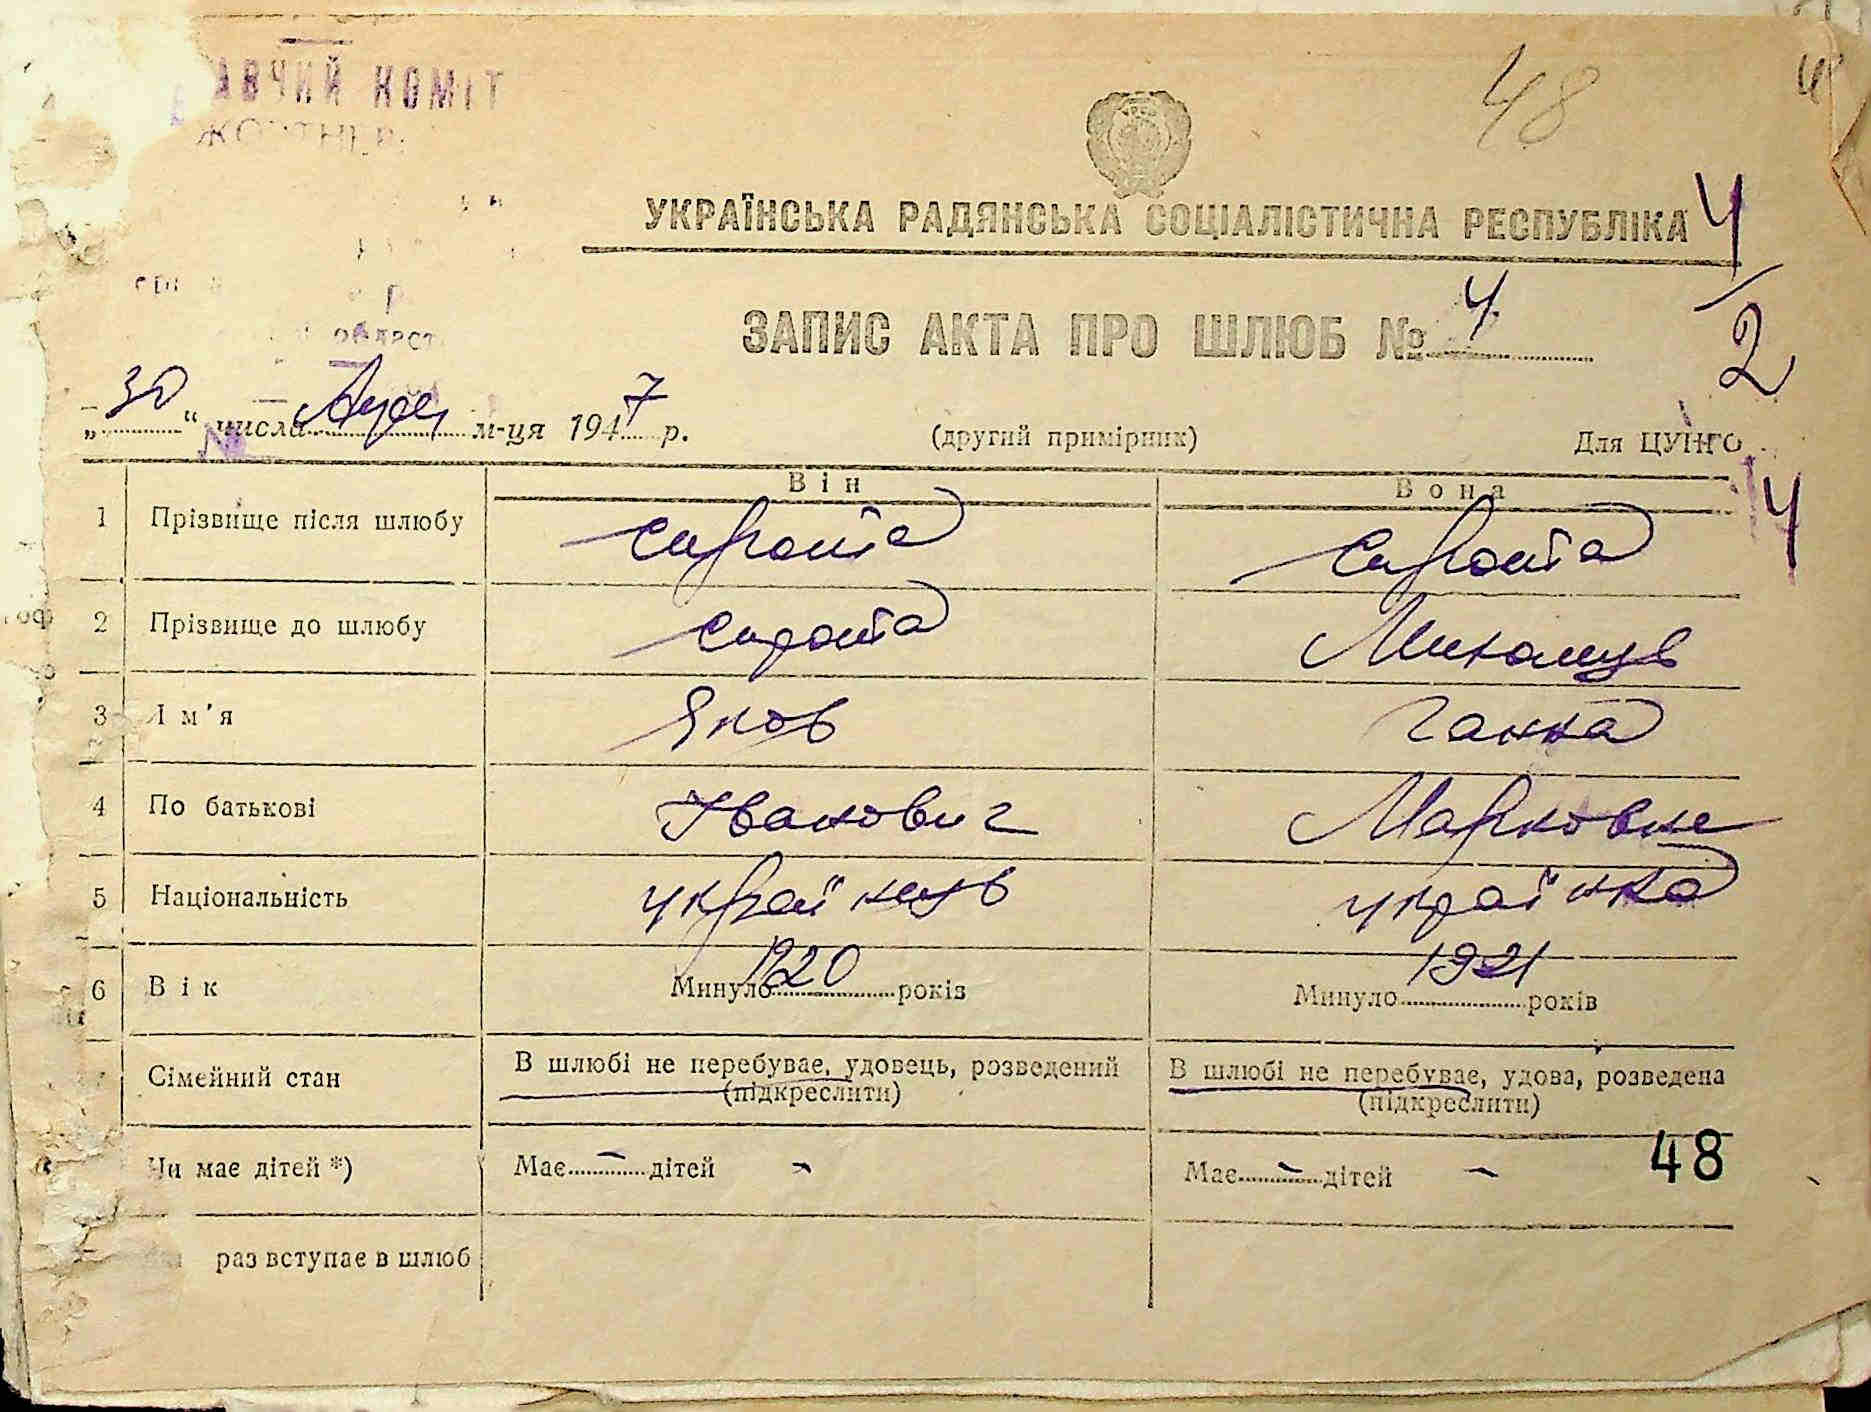 АВЧИЙ КОМІТ
48
УКРАЇНСЬКА РАДЯНСЬКА СОЦІАЛІСТИЧНА РЕСПУБЛІКА
4/2
ЗАПИС АКТА ПРО ШЛЮБ № 4
област
„30“ числа м-ця 1947 р.
(другий примірник)
Для ЦУНГО
Він Вона
4
1 Прізвище після шлюбу Сирота Сирота
2 Прізвище до шлюбу Сирота
3 Ім'я Яков Ганна
4 По батькові Іванович Марковне
5 Національність українець українка
6 Вік Минуло 1920 років Минуло 1921 років
Сімейний стан В шлюбі не перебуває, удовець, розведений (підкреслити) В шлюбі не перебуває, удова, розведена (підкреслити)
Чи має дітей *) Має – дітей - Має – дітей -
48
раз вступає в шлюб